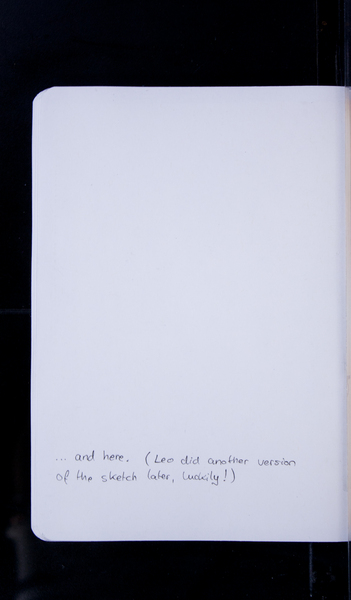 ... and here. (Leo did another version
of the sketch later, luckily!)